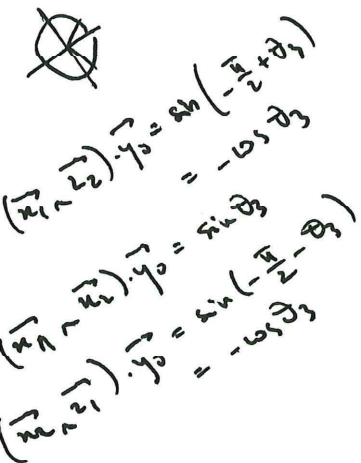 (x₁ ∧ z₂)·y₀ = sin(-π/2 + θ₃)
= -cos θ₃
(x₁ ∧ x₂)·y₀ = sin θ₃
(x₂ ∧ z₁)·y₀ = sin(-π/2 - θ₃)
= -cos θ₃